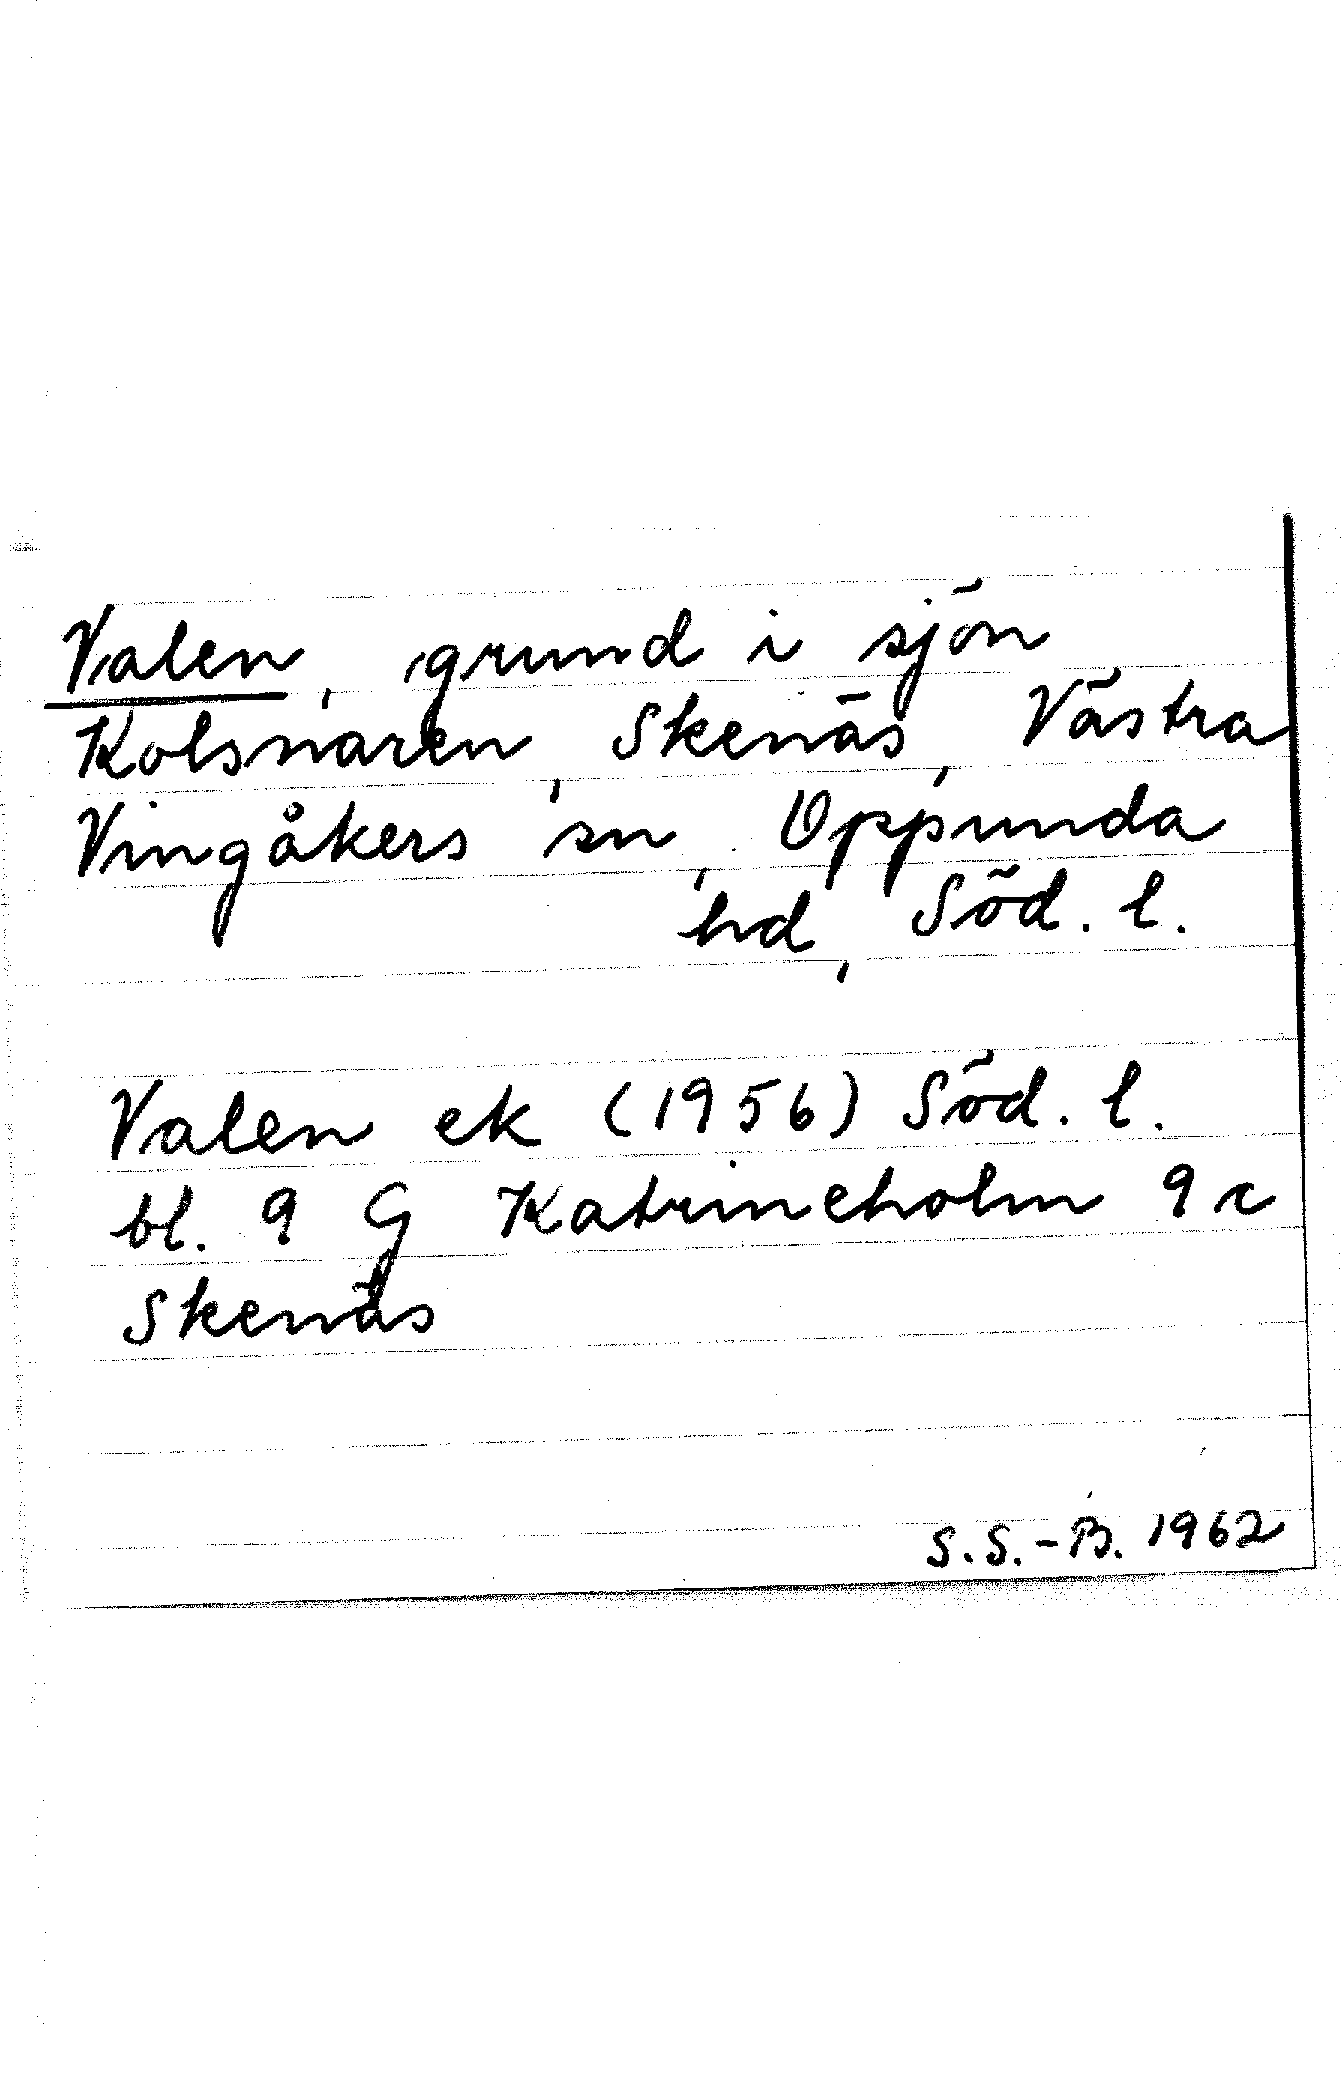 Valen, grund i sjön
Kolsnaren, Skenäs, Västra
Vingåkers sn, Oppunda
hd, Söd. l.
Valen ek (1956) Söd. l.
bl. 9 G Katrineholm 9 c
Skenäs
S.S.-B. 1962